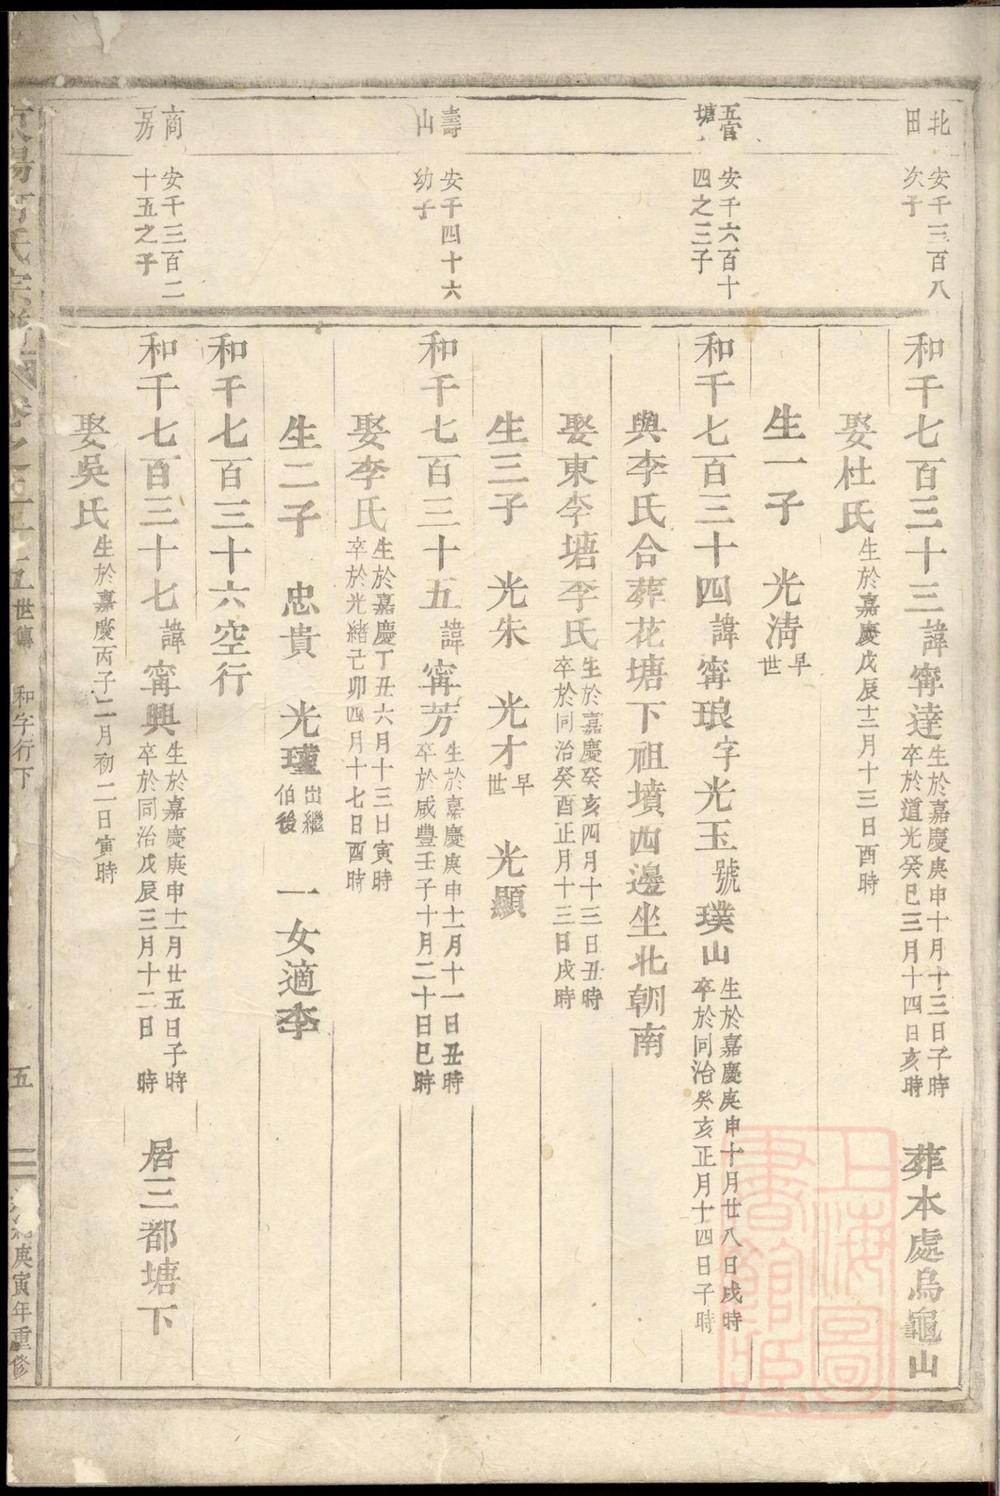 北田
安千三百八次子
和千七百三十三諱甯達生於嘉慶庚申十月十三日子時卒於道光癸巳三月十四日亥時 葬本處烏龜山
娶杜氏生於嘉慶戊辰十二月十三日酉時
生一子 光清早世
五官塘
安千六百十四之三子
和千七百三十四諱甯琅字光玉號璞山生於嘉慶庚申十月廿八日戌時卒於同治癸亥正月十四日子時
與李氏合葬花塘下祖墳西邊坐北朝南
娶東李塘李氏生於嘉慶癸亥四月十三日丑時卒於同治癸酉正月十三日戌時
生三子 光朱 光才早世 光顯
壽山
安千四十六幼子
和千七百三十五諱甯芳生於嘉慶庚申十二月十一日丑時卒於咸豐壬子十月二十日巳時
娶李氏生於嘉慶丁丑六月十三日寅時卒於光緒己卯四月十七日酉時
生二子 忠貴 光瑾出繼伯後 一女適李
和千七百三十六空行
商另
安千三百二十五之子
和千七百三十七諱甯興生於嘉慶庚申十二月廿五日子時卒於同治戊辰三月十二日 時 居三都塘下
娶吳氏生於嘉慶丙子二月初二日寅時
世傳
和字行下
五
庚寅年重修
上海圖書館藏